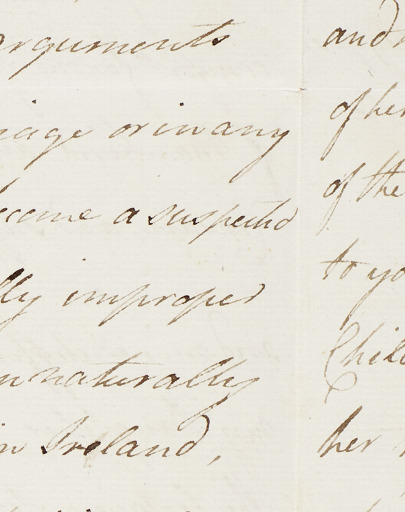 arguments
riage or in any
become a suspected
lly improper
n naturally
in Ireland,
and
of her
of the
to yo
Chil
her